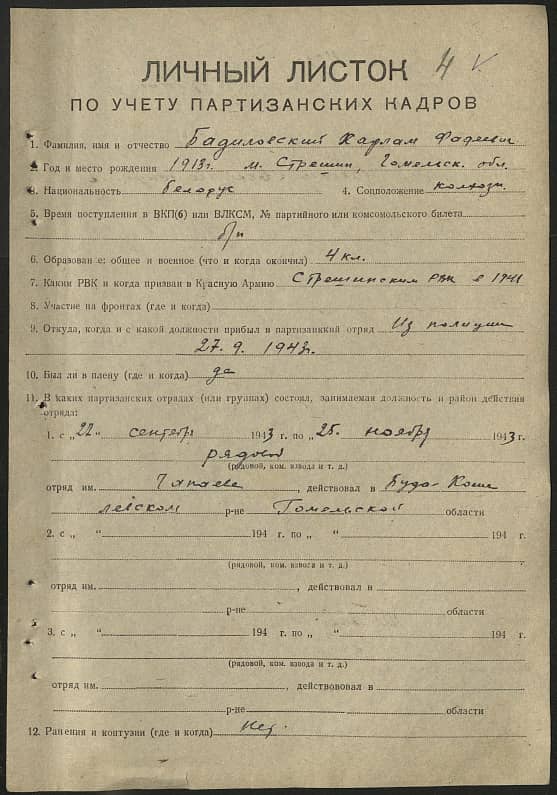 ЛИЧНЫЙ ЛИСТОК 4 V
ПО УЧЕТУ ПАРТИЗАНСКИХ КАДРОВ
1. Фамилия, имя и отчество Бадиловский Харлам Фадеевич
2. Год и место рождения 1913г. м. Стрешин, Гомельск. обл.
3. Национальность белорус 4. Соцположение колхозн.
5. Время поступления в ВКП(б) или ВЛКСМ, № партийного или комсомольского билета
б/п
6. Образован е: общее и военное (что и когда окончил) 4 кл.
7. Каким РВК и когда призван в Красную Армию Стрешинским РВК в 1941
8. Участие на фронтах (где и когда)
9. Откуда, когда и с какой должности прибыл в партизанкий отряд Из полиции
27. 9. 1943г.
10. Был ли в плену (где и когда) да
11. В каких партизанских отрядах (или группах) состоял, занимаемая должность и район действия
отряда:
1. с „22" сентября 1943 г. по „25" ноября 1943 г.
рядовой
(рядовой, ком. взвода и т. д.)
отряд им. Чапаева, действовал в Буда-Коше
левском р-не Гомельской области
2. с „ " 194 г. по „ " 194 г.
(рядовой, ком. взвода и т. д.)
отряд им. , действовал в
р-не области
3. с „ " 194 г. по „ " 194 г.
(рядовой, ком. взвода и т. д.)
отряд им. , действововал в
р-не области
12. Ранения и контузии (где и когда) нет.